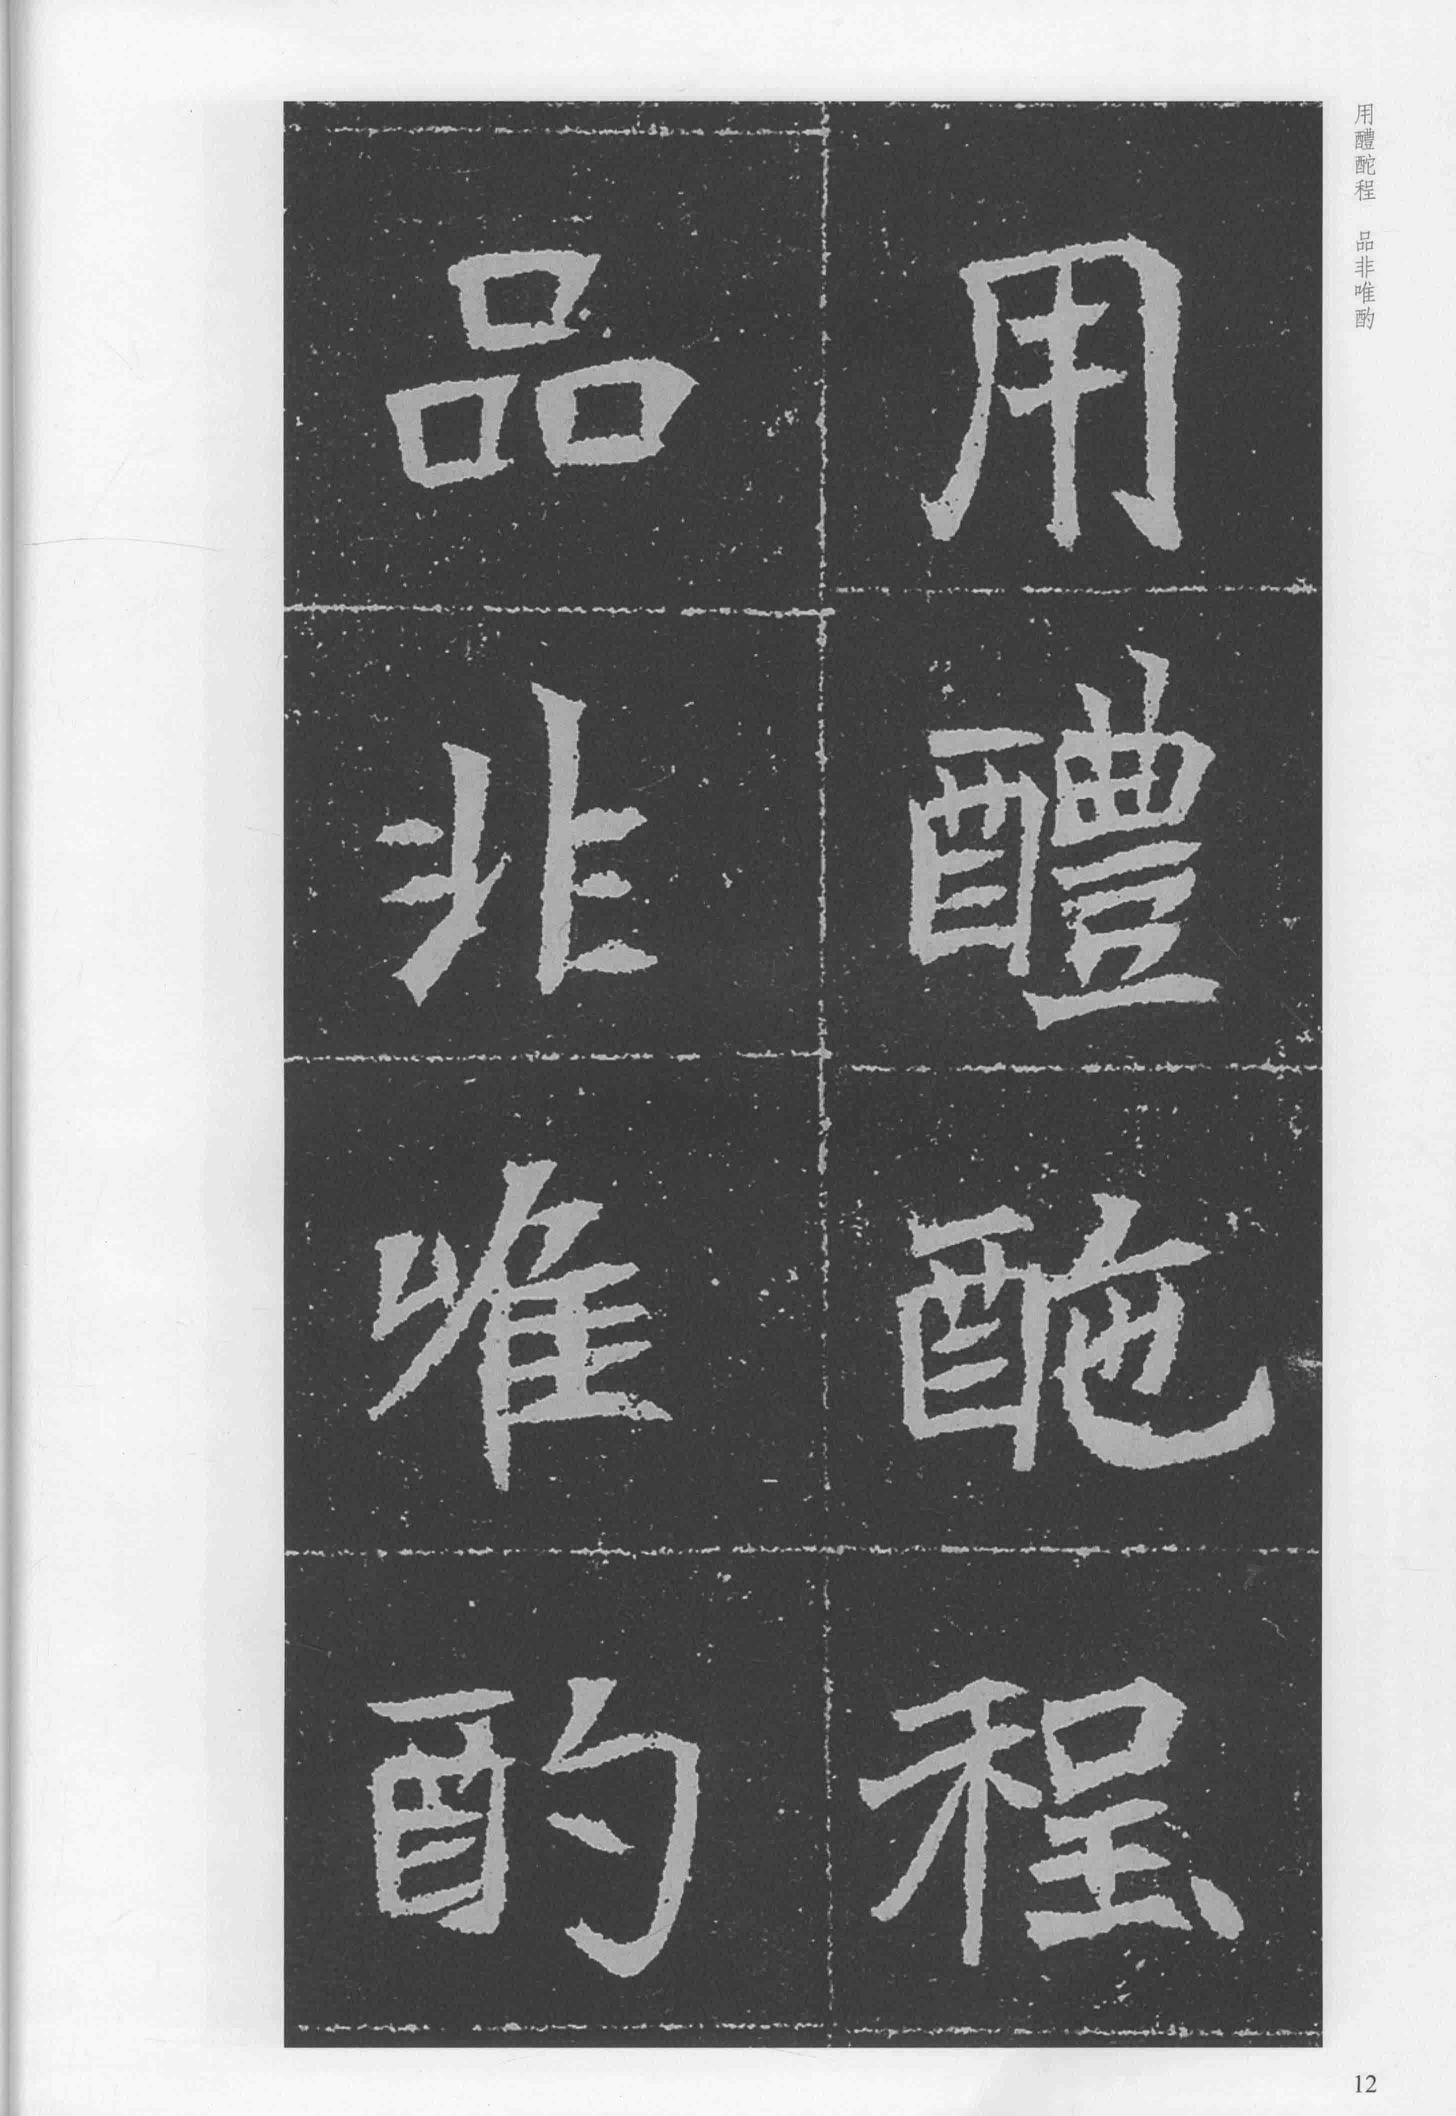 用醴酏程
品非唯酌
用醴酏程 品非唯酌
12